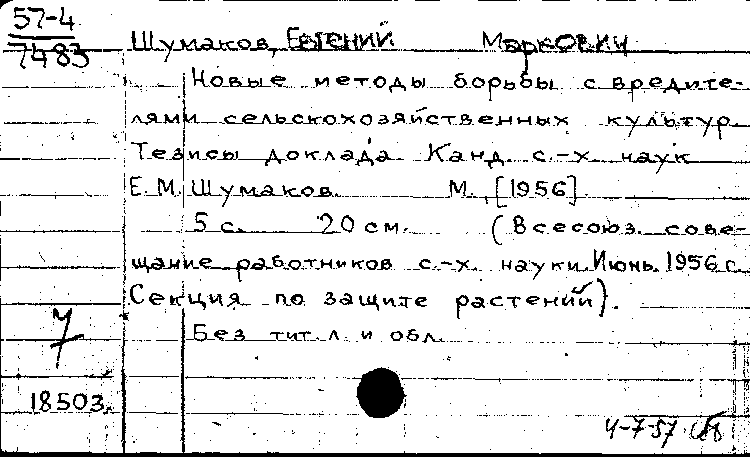 57-4
7483
Шумаков, Евгений Маркович
Новые методы борьбы с вредите-
лями сельскохозяйственных культур.
Тезисы доклада Канд. с.-х. наук
Е. М. Шумаков. М., [1956].
5 с. 20 см. (Всесоюз. сове-
щание работников с.-х. науки. Июнь 1956 г.
Секция по защите растений).
Без тит. л. и обл.
7
18503.
4-7-57